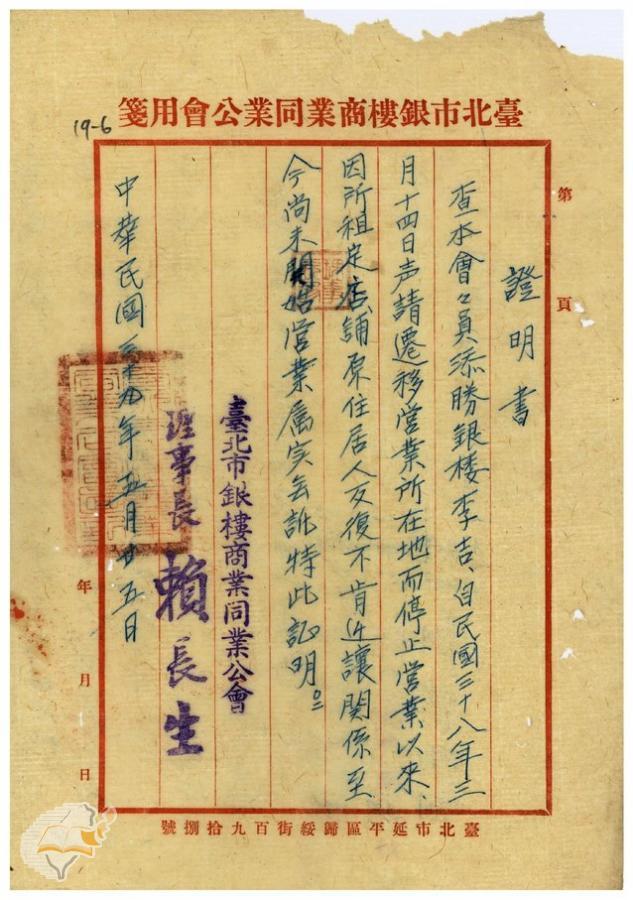 臺北市銀樓商業同業公會用箋
19-6
第 頁
證明書
查本會々員添勝銀楼李吉、自民國三十八年三
月十四日声請遷移営業所在地而停止営業以來、
因所租定店舖原住居人反復不肯迁讓関係至
今尚未開始営業属実無訛特此証明。
臺北市銀樓商業同業公會
理事長 賴長生
中華民國三十九年五月廿五日
年 月 日
臺北市延平區歸綏街百九拾捌號